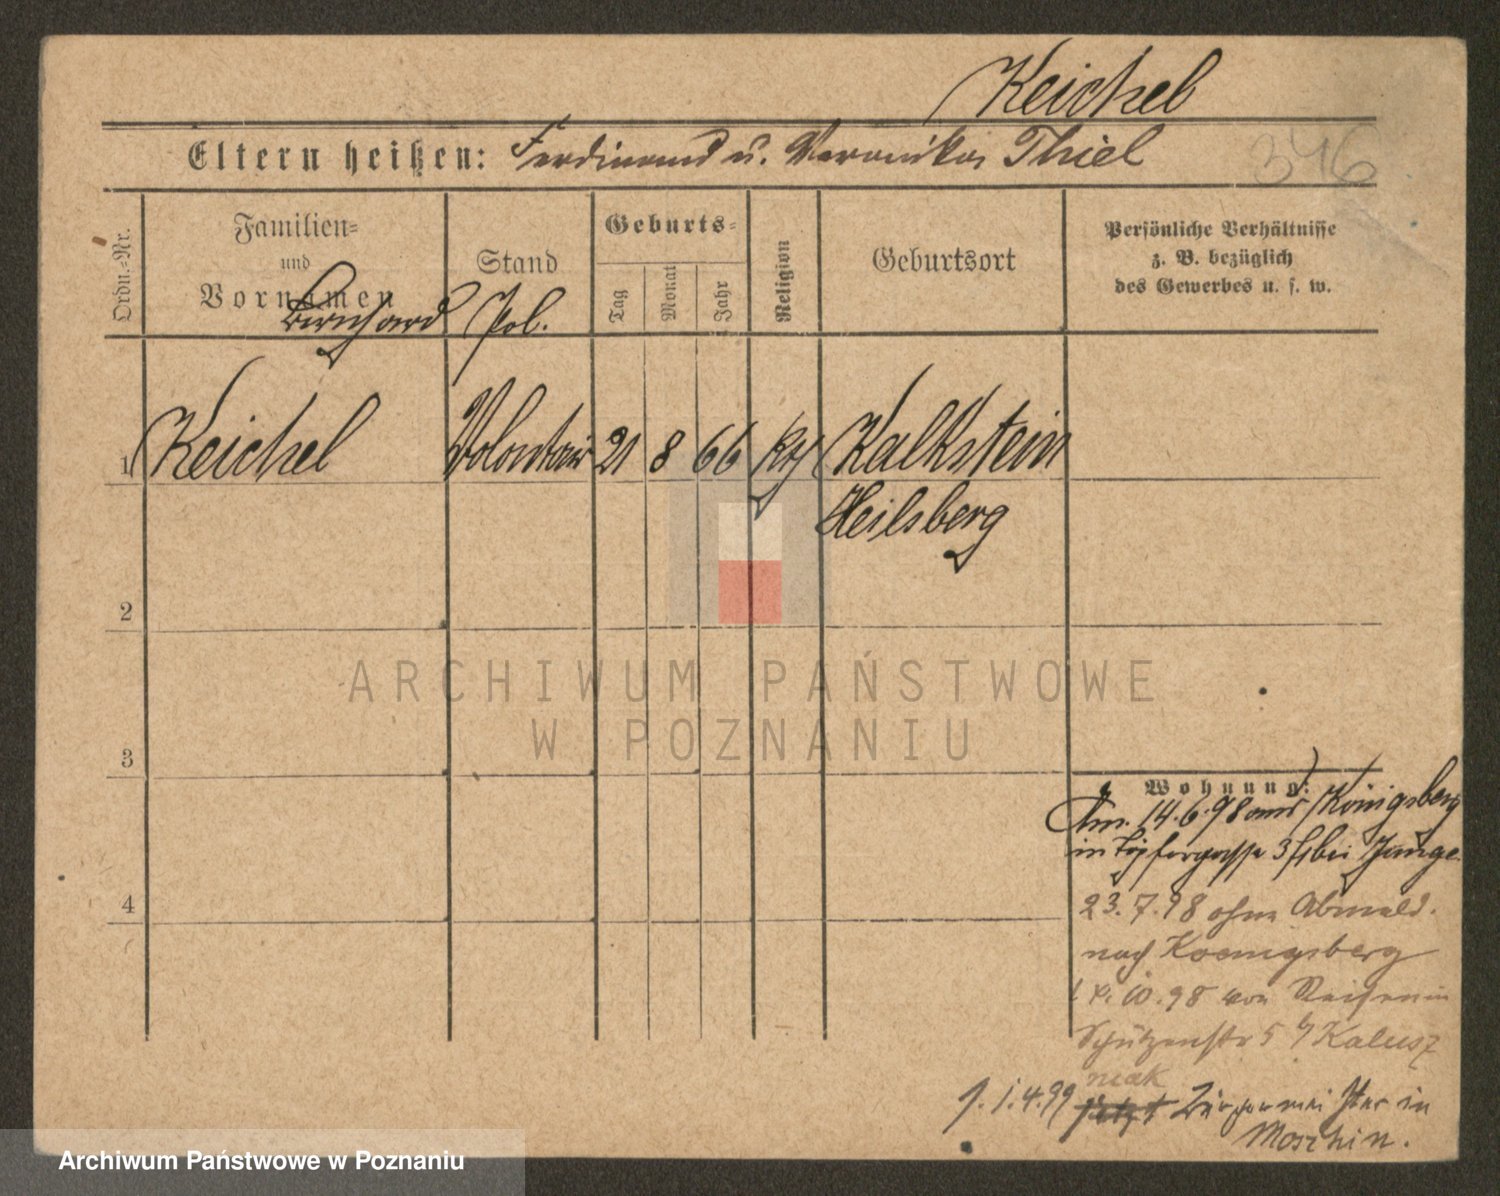 Keichel
Eltern heißen: Ferdinand u. Veronika Thiel
346
Ordn.-Nr.
Familien- und Vornamen
Stand
Geburts-
Tag
Monat
Jahr
Religion
Geburtsort
Persönliche Verhältnisse
z. B. bezüglich
des Gewerbes u. s. w.
Bernhard Pol.
1 Keichel Volontair 21 8 66 Kth Kalkstein
Heilsberg
2
ARCHIWUM PAŃSTWOWE
W POZNANIU
3
Wohnung:
Am. 14.6.98 aus Königsberg
in Töpfergasse 3 I bei Junge
4
23.7.98 ohne Abmeld.
nach Koenigsberg
10.98 von
Schützenstr 5 b/ Kalusz
niak
1.4.99 jetzt Bürgermeister in
Moschin.
Archiwum Państwowe w Poznaniu